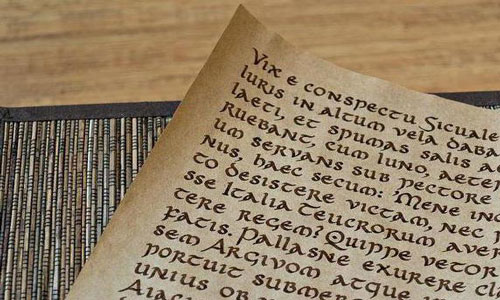 Vix e conspectu Sicuale
luris in altum vela daba
laeti, et spumas salis ae
ruebant, cum Iuno, aete
um servans sub pectore
nus, haec secum: Mene in
to desistere victam, nec p
sse Italia Teucrorum aver
tere regem? Quippe vetor
fatis. Pallasne exurere cl
sem Argivom atque
portuit submer
unius ob
Aiaci